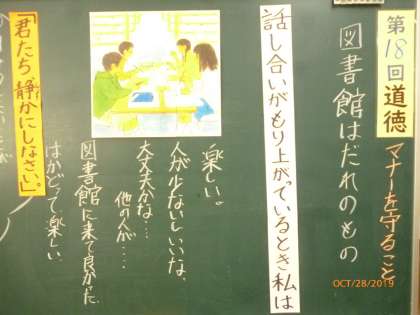 第18回 道徳
マナーを守ること
図書館はだれのもの
話し合いがもり上がっているとき私は
楽しい。
人が少ないしいいな、
大丈夫かな…
他の人が….
図書館に来て良かった。
はかどって楽しい、
「君たち静かにしなさい。」
OCT/28/2019